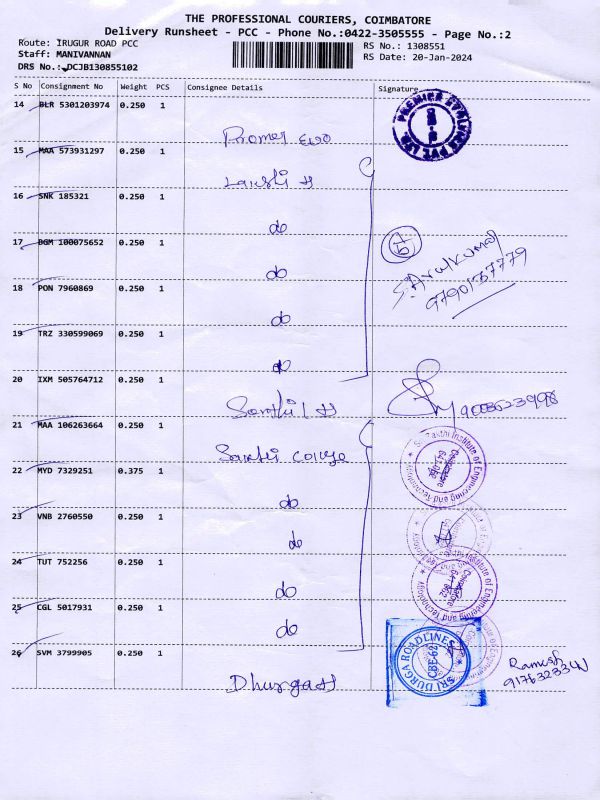 THE PROFESSIONAL COURIERS, COIMBATORE
Delivery Runsheet - PCC - Phone No.:0422-3505555 - Page No.:2
Route: IRUGUR ROAD PCC
Staff: MANIVANNAN
DRS No.: DCJB130855102
RS No.: 1308551
RS Date: 20-Jan-2024
S No Consignment No Weight PCS Consignee Details Signature
14 BLR 5301203974 0.250 1
PREMIER EVOLVICS PVT. LTD.
15 MAA 573931297 0.250 1
16 SNK 185321 0.250 1
do
17 BGM 100075652 0.250 1
do
79
S. Arulkumar
9790137779
18 PON 7960869 0.250 1
do
19 TRZ 330599069 0.250 1
do
20 IXM 505764712 0.250 1
21 MAA 106263664 0.250 1
Sakthi College
Sri Sakthi Institute of Engineering and Technology
Coimbatore
641 062
22 MYD 7329251 0.375 1
do
23 VNB 2760550 0.250 1
do
24 TUT 752256 0.250 1
do
Sri Sakthi Institute of Engineering and Technology
Coimbatore
641 062
25 CGL 5017931 0.250 1
do
26 SVM 3799905 0.250 1
Dhurga
SRI DURGA ROADLINES
CBE-62
Ramesh